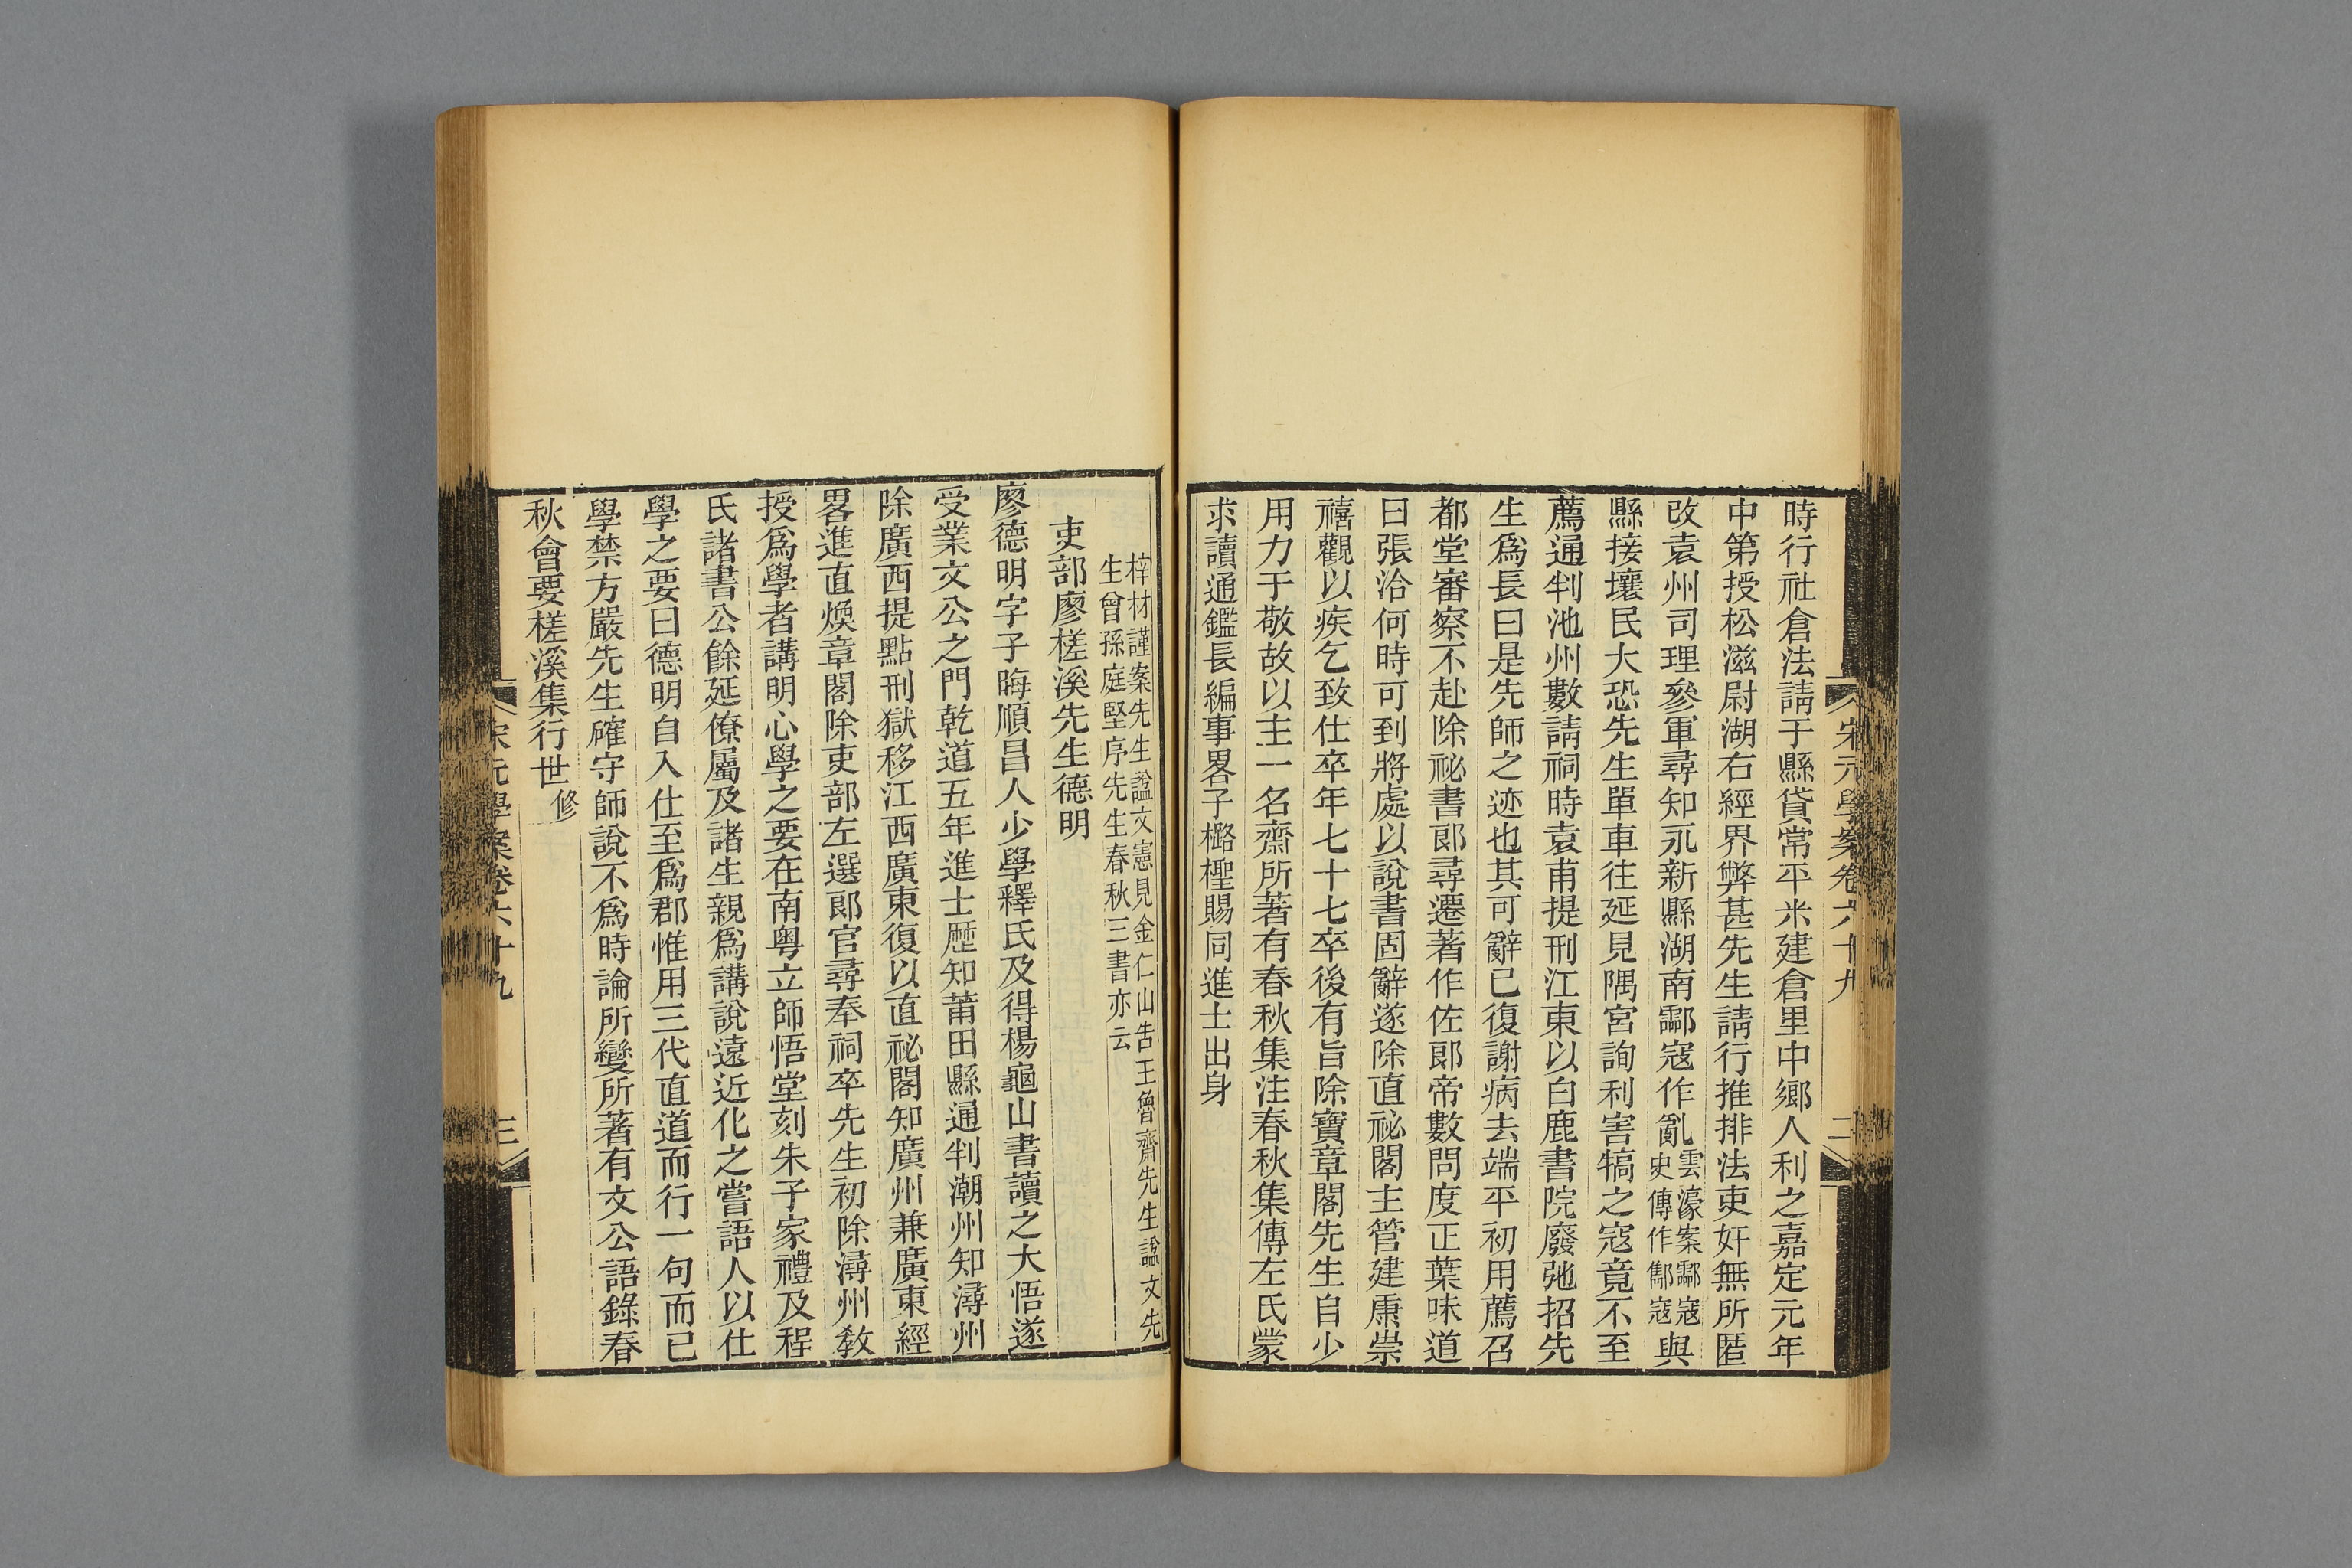 宋元學案卷六十九
二
時行社倉法請于縣貸常平米建倉里中鄉人利之嘉定元年
中第授松滋尉湖右經界弊甚先生請行推排法吏奸無所匿
改袁州司理參軍尋知永新縣湖南酃寇作亂雲濠案酃寇史傳作酃寇與
縣接壤民大恐先生單車往延見隅官詢利害犒之寇竟不至
薦通判池州數請祠時袁甫提刑江東以白鹿書院廢弛招先
生爲長曰是先師之迹也其可辭已復謝病去端平初用薦召
都堂審察不赴除祕書郞尋遷著作佐郞帝數問度正葉味道
曰張洽何時可到將處以說書固辭遂除直祕閣主管建康崇
禧觀以疾乞致仕卒年七十七卒後有旨除寶章閣先生自少
用力于敬故以主一名齋所著有春秋集注春秋集傳左氏蒙
求讀通鑑長編事畧子樞檉賜同進士出身
梓材謹案先生諡文憲見金仁山告王魯齋先生諡文先
生曾孫庭堅序先生春秋三書亦云
吏部廖槎溪先生德明
廖德明字子晦順昌人少學釋氏及得楊龜山書讀之大悟遂
受業文公之門乾道五年進士歷知莆田縣通判潮州知潯州
除廣西提點刑獄移江西廣東復以直祕閣知廣州兼廣東經
畧進直煥章閣除吏部左選郞官尋奉祠卒先生初除潯州敎
授爲學者講明心學之要在南粤立師悟堂刻朱子家禮及程
氏諸書公餘延僚屬及諸生親爲講說遠近化之嘗語人以仕
學之要曰德明自入仕至爲郡惟用三代直道而行一句而已
學禁方嚴先生確守師說不爲時論所變所著有文公語錄春
秋會要槎溪集行世修
宋元學案卷六十九
三